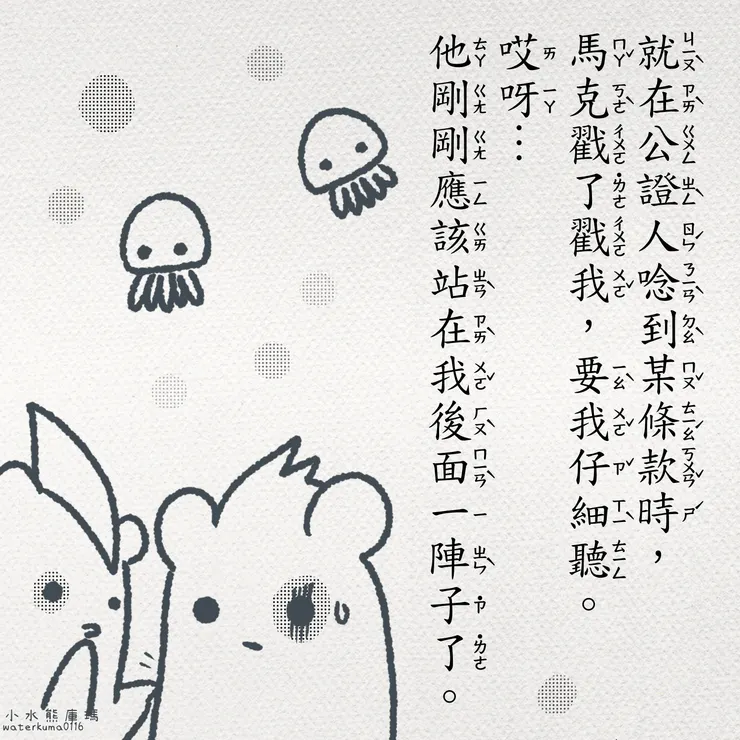 就在公證人唸到某條款時，
馬克戳了戳我，要我仔細聽。
哎呀…
他剛剛應該站在我後面一陣子了。
小水熊庫瑪
waterkuma0116